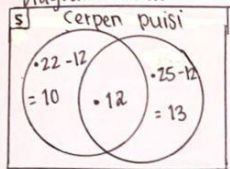 S Cerpen puisi
•22-12
= 10
•12
•25-12
= 13